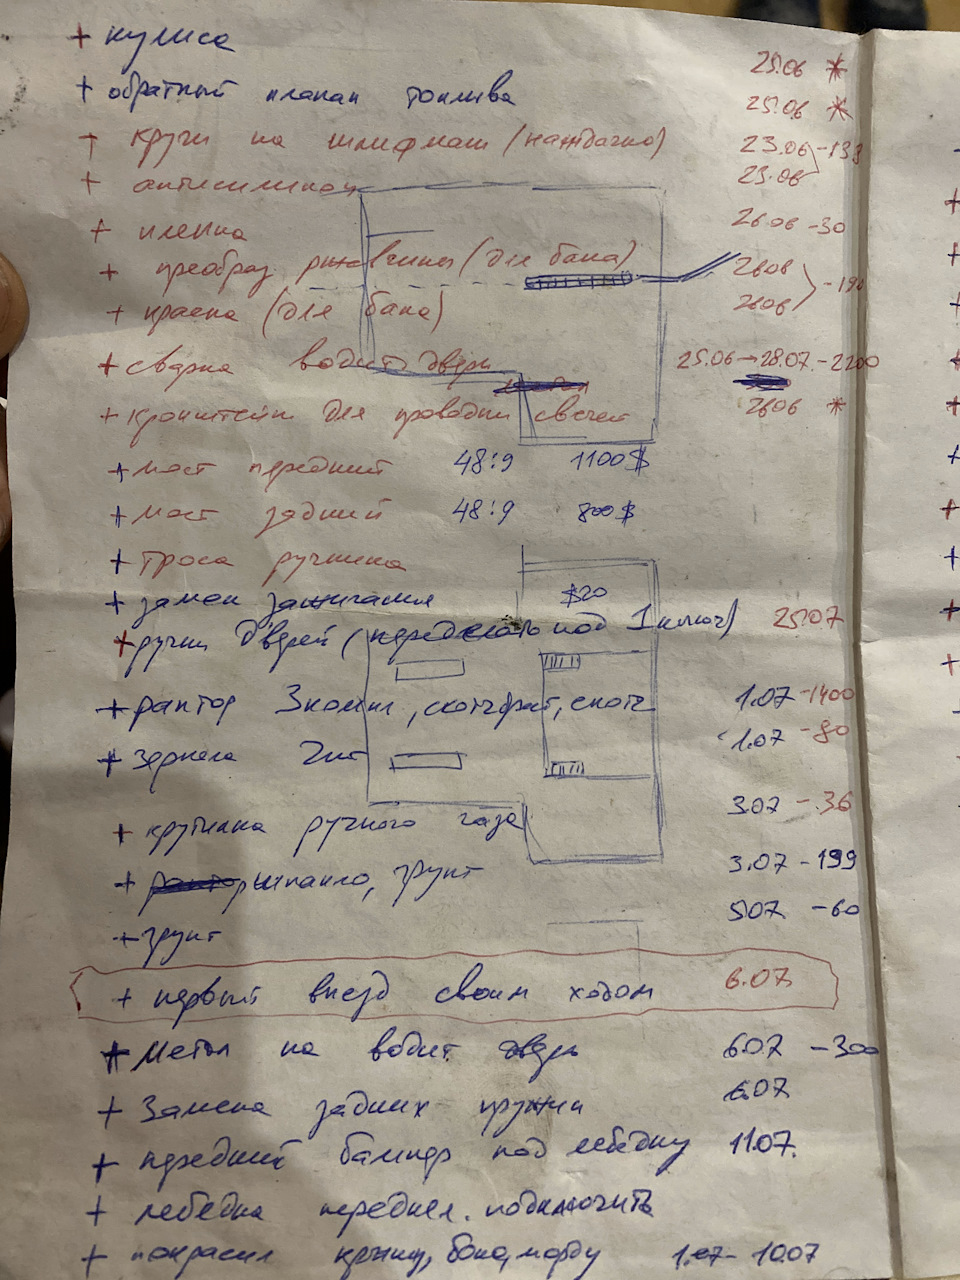 + кулиса 25.06 *
+ обратный клапан топлива 25.06 *
+ круги на шлифмаш (наждачно) 23.06
+ антисиликон 23.06 -133
+ пленка 26.06 -30
+ преобраз ржавчины (для бака) 26.06
+ краска (для бака) 26.06
+ сварка водит двери 25.06 → 28.07. -2200
+ кронштейн для проводки свечей 26.06 *
+ мост передний 48:9 1100$
+ мост задний 48:9 800$
+ троса ручника
+ замок зажигания $20
+ ручки дверей (переделать под 1 ключ) 25.07
+ раптор 3 компл, скотчбрайт, скотч 1.07 -1400
+ зеркала 2шт 1.07 -80
+ крутилка ручного газа 3.07 -36
+ шпакло, грунт 3.07 -199
+ грунт 5.07 -60
+ первый выезд своим ходом 6.07
+ метал на водит дверь 6.07 -300
+ Замена задних пружин 6.07
+ передний бампер под лебедку 11.07.
+ лебедка передняя. подключить
+ покрасил крышу, бока, морду 1.07- 10.07